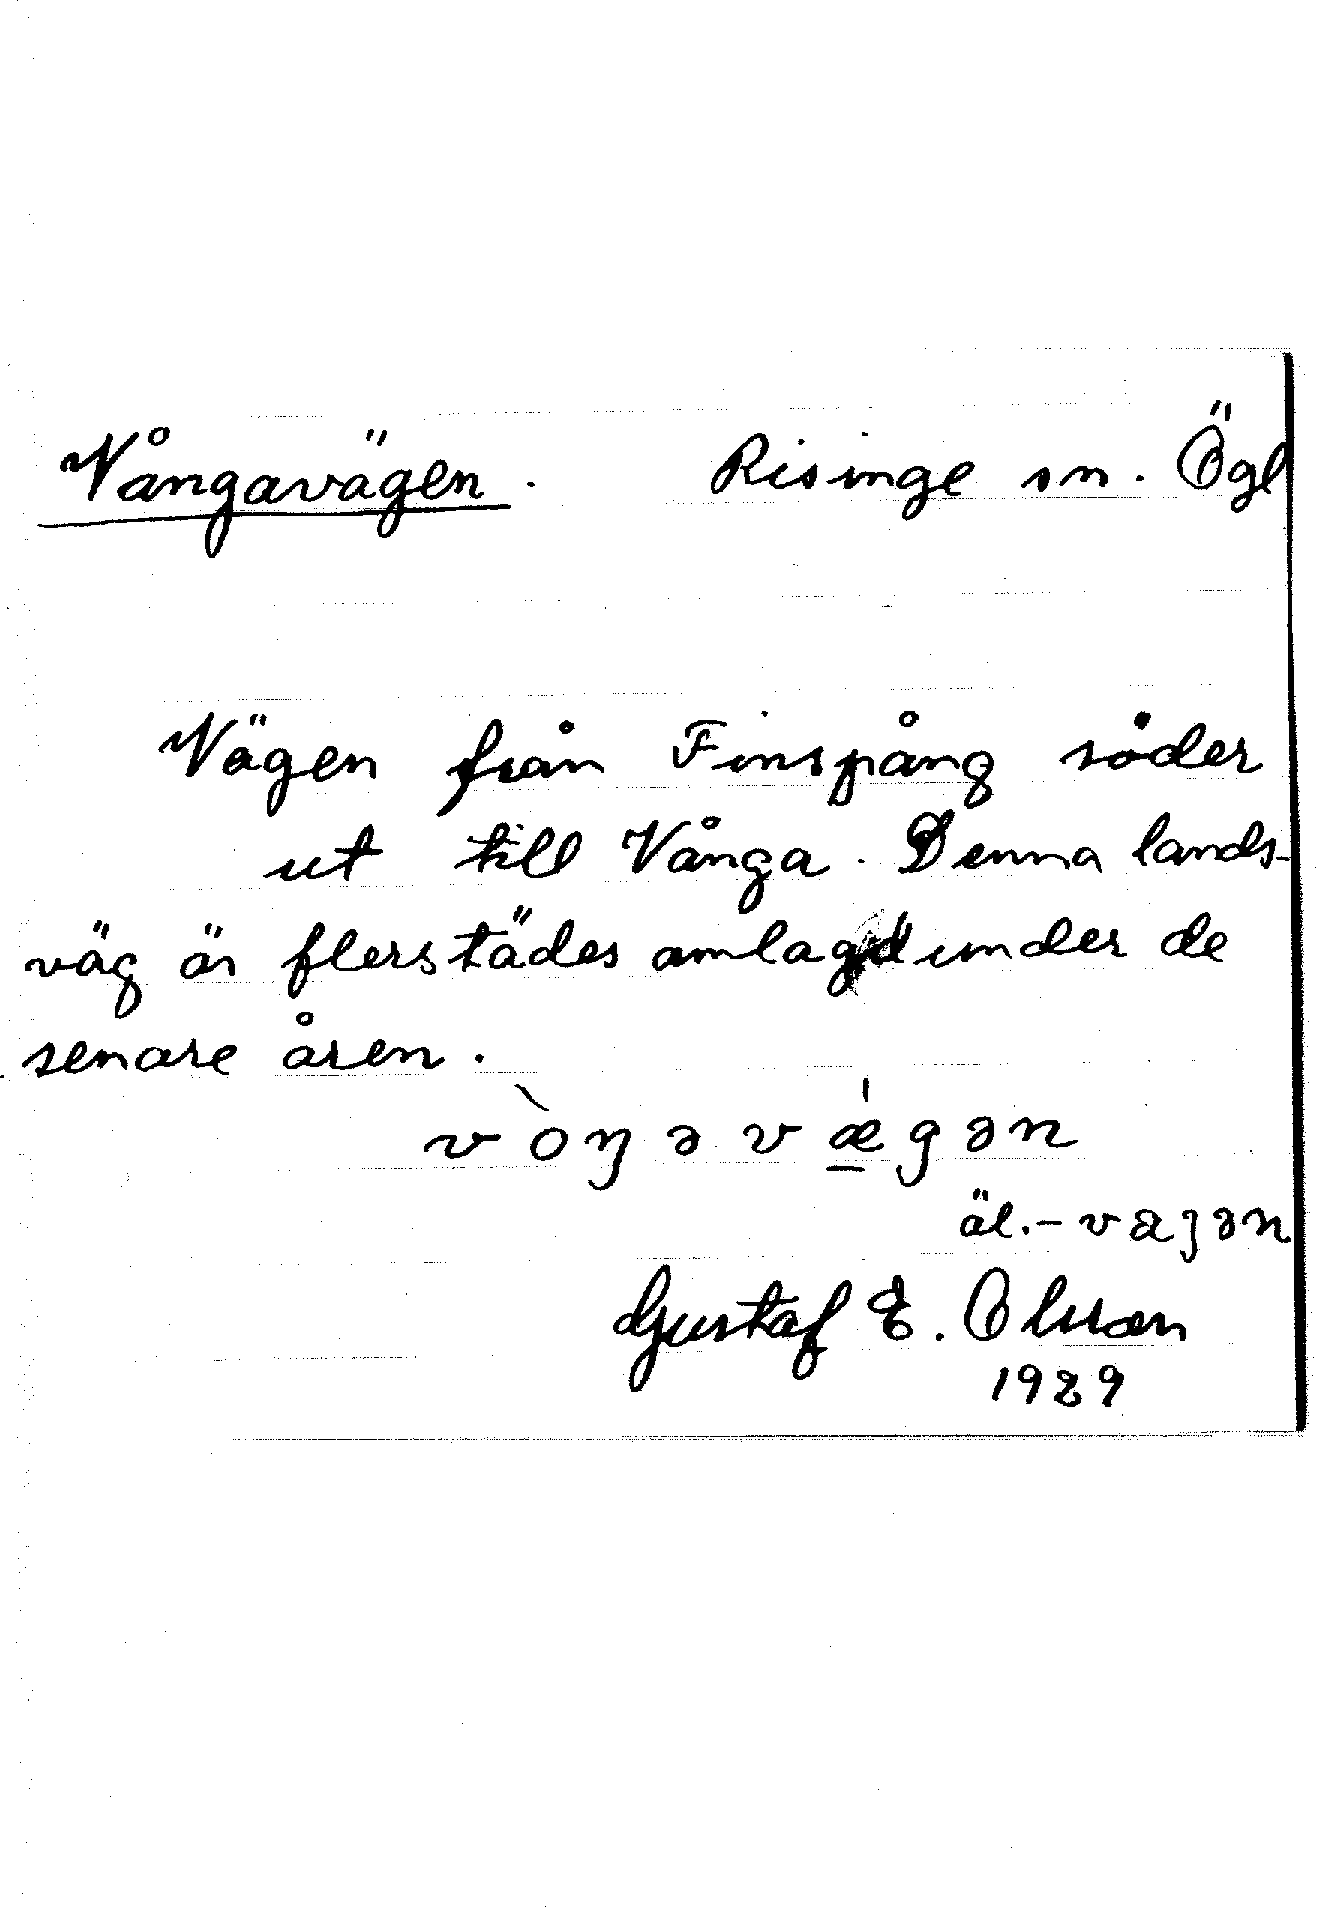 Vångavägen. Risinge sn. Ögl
Vägen från Finspång söder
ut till Vånga. Denna lands-
väg är flerstädes omlagd under de
senare åren.
vòŋəvǽgən
äl.-vægən
Gustaf E. Olsson
1929